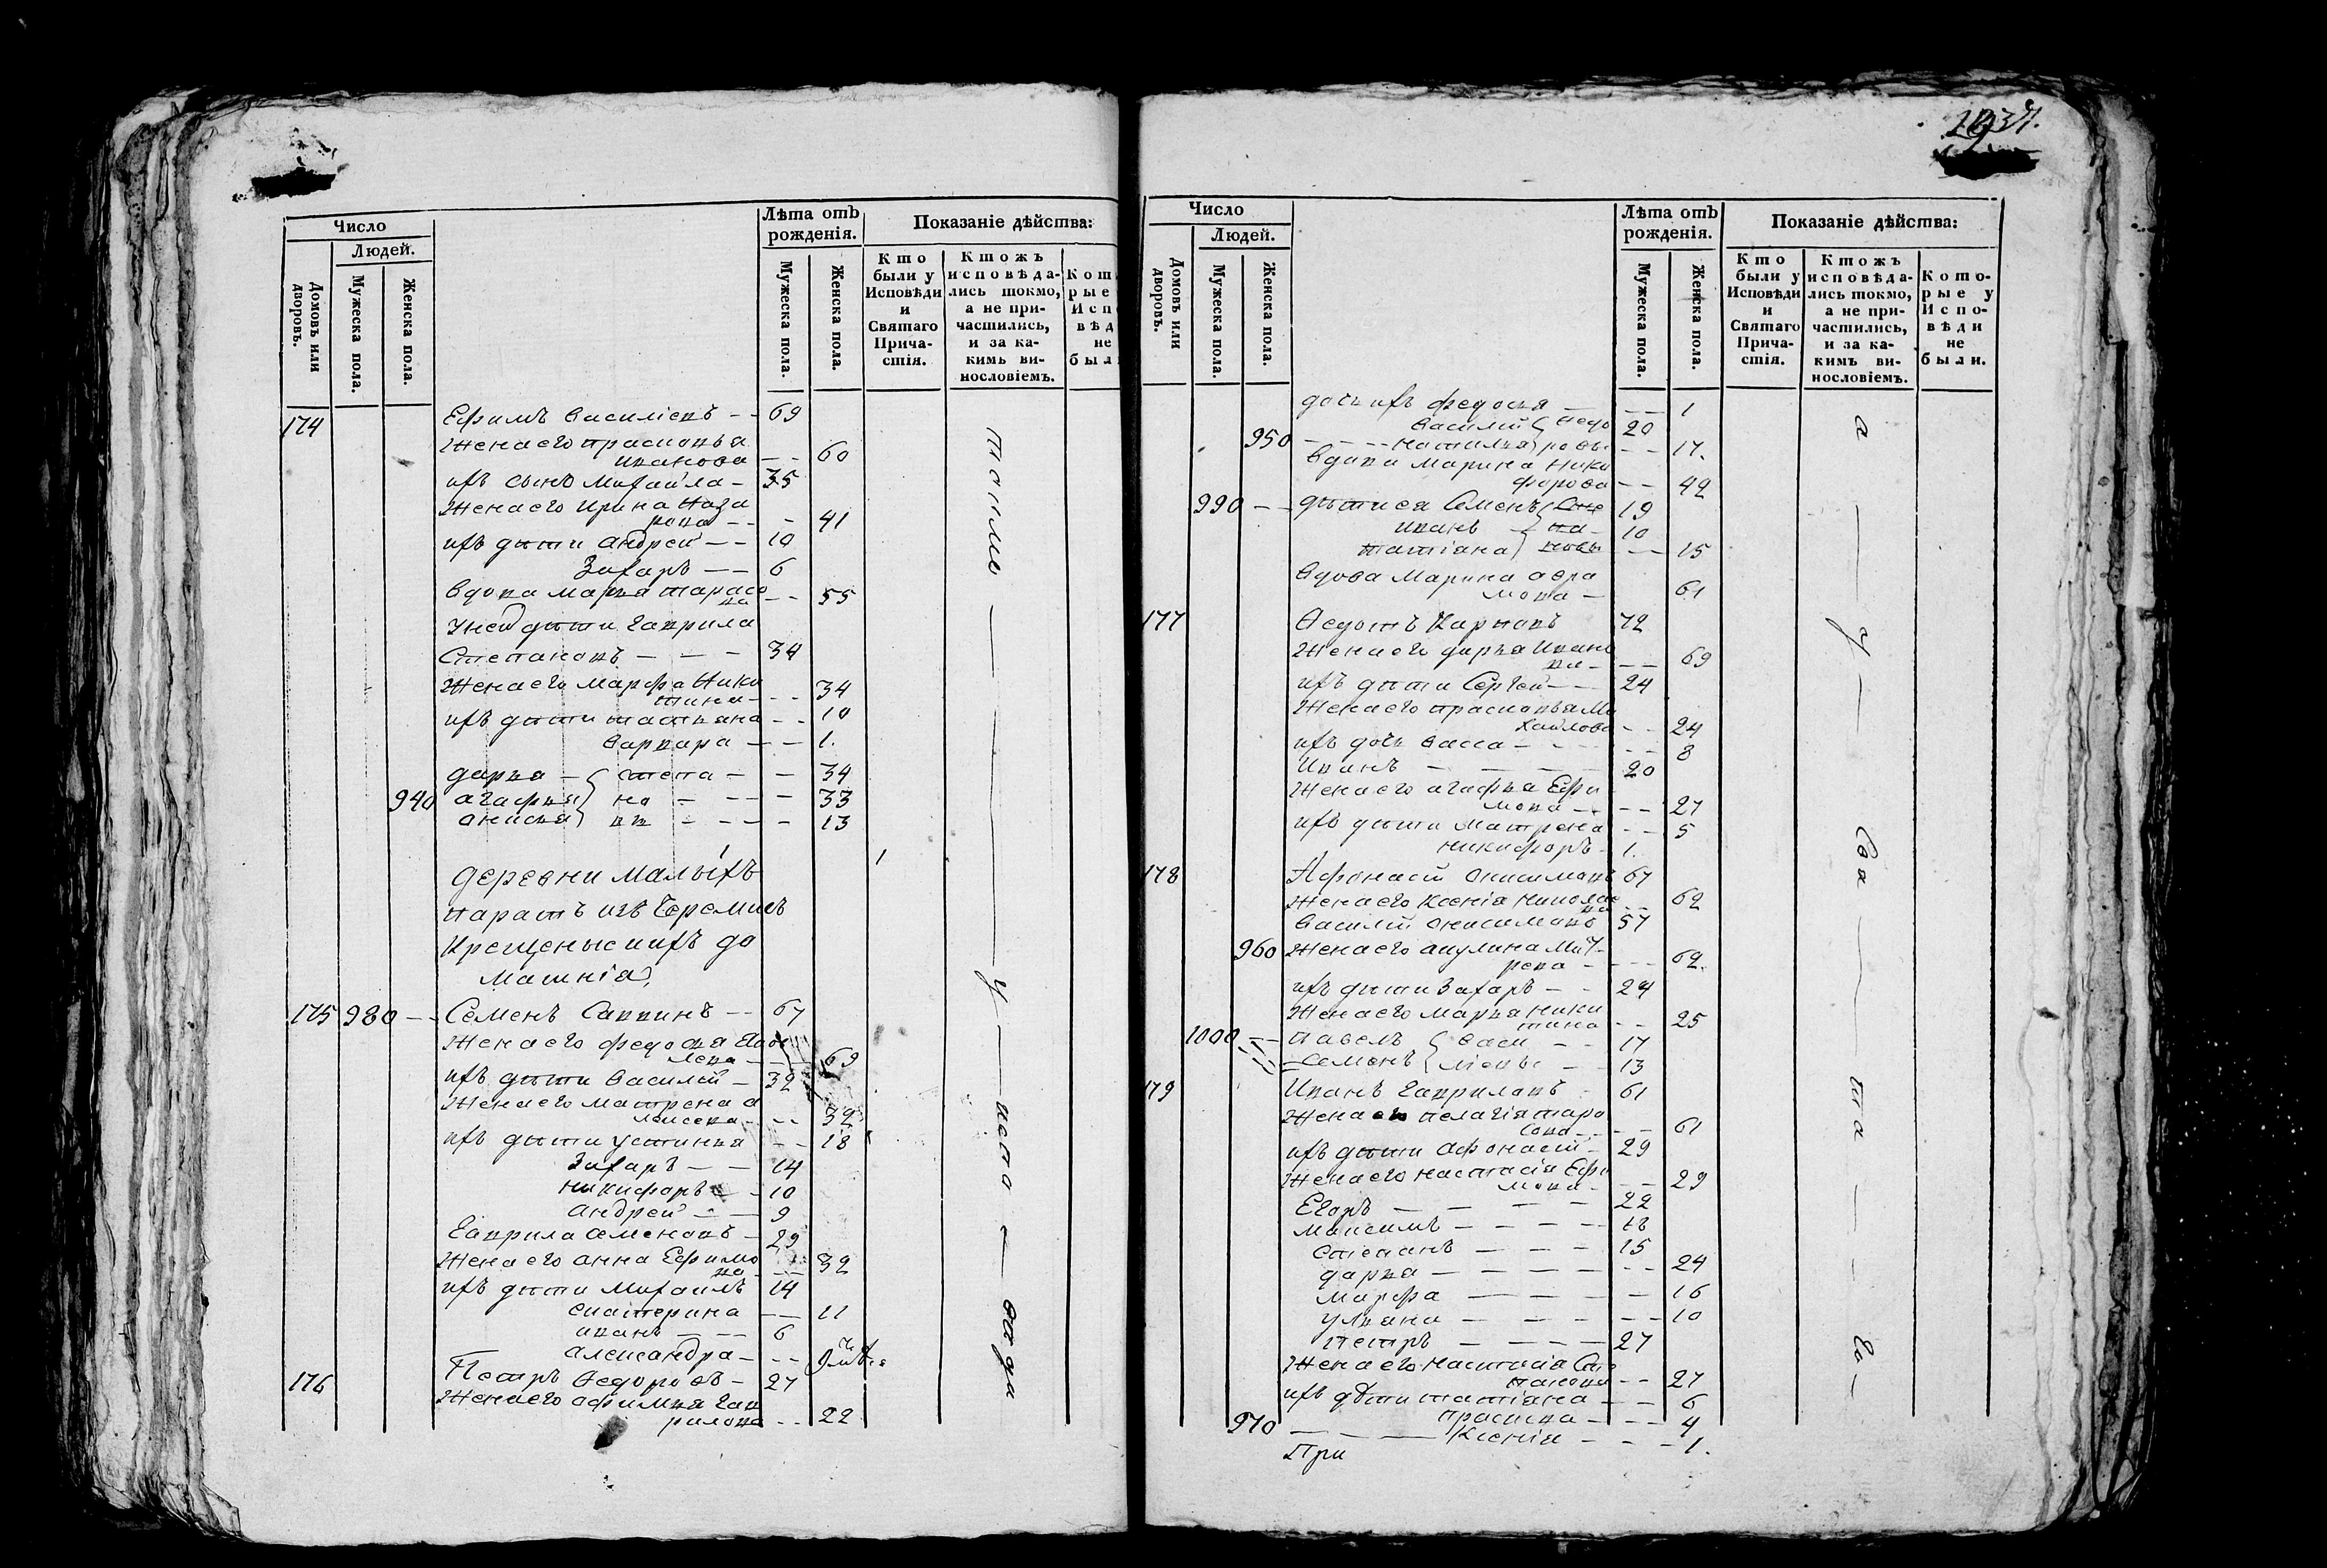 1037.
Число
Людей.
Домовъ или дворовъ.
Мужеска пола.
Женска пола.
Лѣта отъ рожденія.
Мужеска пола.
Женска пола.
Показаніе дѣйства:
Кто были у Исповѣди и Святаго Причастія.
Ктожъ исповѣдались токмо, а не причастились, и за какимъ винословіемъ.
174 Ефимъ Васильевъ 69
Жена его Прасковья
Иванова 60
ихъ сынъ Михайла 35
Жена его Ирина Наза
рова 41
ихъ дѣти Андрей 10
Захаръ 6
Вдова Марья Тарасо
ва 55
У ней дѣти Гаврила
Степановъ 34
Жена его Марфа Ники
тина 34
ихъ дѣти Татьяна 10
Варвара 1.
Дарья Степа 34
940 Агафья но 33
Анисья вы 13
Деревни Малыхъ
Паратъ изъ Черемисъ
Крещеные и ихъ до
машнія
175 980 Семенъ Саввинъ 67
Жена его Федосья Яков
лева 69
ихъ дѣти Василий 32
Жена его Матрена А
лексеева 32
ихъ дѣти Устинья 18
Захаръ 14
Никифоръ 10
Андрей 9
Гаврила Семеновъ 29
Жена его Анна Ефимо
ва 32
ихъ дѣти Михаилъ 14
Екатерина 11
Иванъ 6
Александра
176 Петръ Ѳедоровъ 27
Жена его Афимья Гав
рилова 22
Число
Людей.
Домовъ или дворовъ.
Мужеска пола.
Женска пола.
Лѣта отъ рожденія.
Мужеска пола.
Женска пола.
Показаніе дѣйства:
Кто были у Исповѣди и Святаго Причастія.
Ктожъ исповѣдались токмо, а не причастились, и за какимъ винословіемъ.
Которые у Исповѣди не были.
дочь ихъ Федосья 1
Василий Ѳедо 20
950 Наталья ровы 17.
Вдова Марина Ники
форова 42
990 дѣти ея Семенъ Сте 19
Иванъ па 10
Татіана новы 15
Вдова Марина Авра
мова 61
177 Ѳедотъ Карповъ 72
Жена его Дарья Ивано
ва 69
ихъ дѣти Сергей 24
Жена его Прасковья Ми
хайлова 24
ихъ дочь Васса 8
Иванъ 20
Жена его Агафья Ефи
мова 27
ихъ дѣти Матрена 5
Никифоръ 1.
178 Афонасий Онисимовъ 67
Жена его Ксенія Николае
ва 62
Василий Онисимовъ 57
960 Жена его Акулина
62.
ихъ дѣти Захаръ 24
Жена его Марья Ники
тина 25
1000 Павелъ Васи 17
Семенъ льевы 13
179 Иванъ Гавриловъ 61
Жена его Пелагія Тара
сова 61
ихъ дѣти Афонасий 29
Жена его Настасія Ефи
мова 29
Егоръ 22
Максимъ 18
Степанъ 15
Дарья 24
Марфа 16
Ульяна 10
Петръ 27
Жена его Настасія Сте
панова 27
ихъ дѣти Татіана 6
Праскева 4
970 Ксенія 1.
При